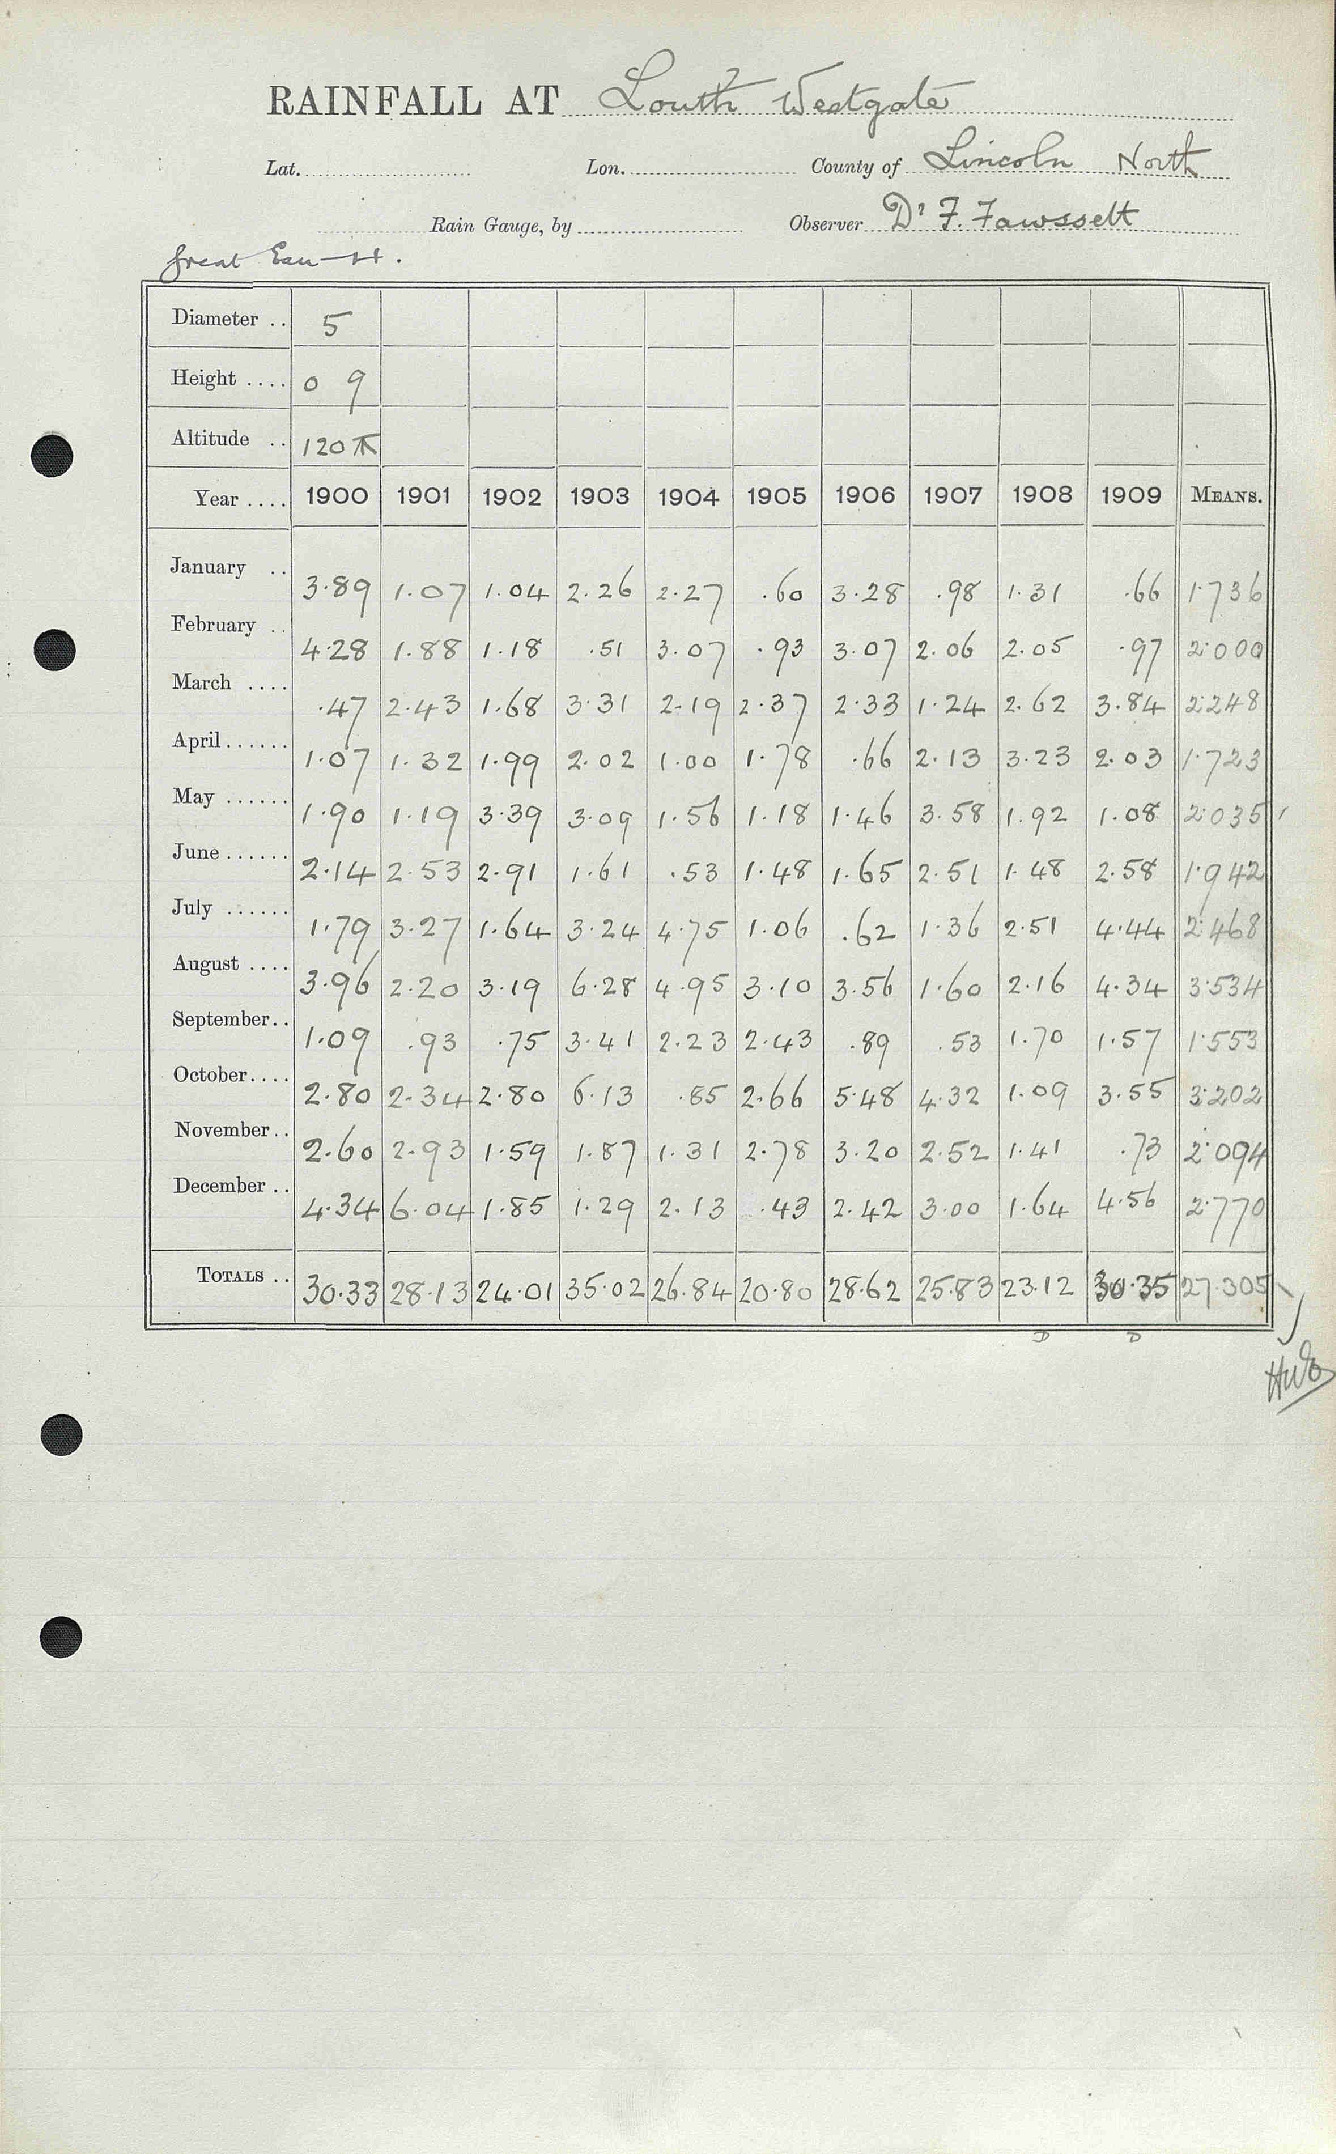 RAINFALL AT Louth Westgate
Lat. Lon. County of Lincoln North
Rain Gauge, by Observer Dr F. Fawssett
Great
Diameter .. 5
Height .... 0 9
Altitude .. 120
Year .... 1900 1901 1902 1903 1904 1905 1906 1907 1908 1909 MEANS.
January .. 3.89 1.07 1.04 2.26 2.27 .60 3.28 .98 1.31 .66 1.736
February .. 4.28 1.88 1.18 .51 3.07 .93 3.07 2.06 2.05 .97 2.000
March .... .47 2.43 1.68 3.31 2.19 2.37 2.33 1.24 2.62 3.84 2.248
April...... 1.07 1.32 1.99 2.02 1.00 1.78 .66 2.13 3.23 2.03 1.723
May ...... 1.90 1.19 3.39 3.09 1.56 1.18 1.46 3.58 1.92 1.08 2.035
June...... 2.14 2.53 2.91 1.61 .53 1.48 1.65 2.51 1.48 2.58 1.942
July ...... 1.79 3.27 1.64 3.24 4.75 1.06 .62 1.36 2.51 4.44 2.468
August .... 3.96 2.20 3.19 6.28 4.95 3.10 3.56 1.60 2.16 4.34 3.534
September.. 1.09 .93 .75 3.41 2.23 2.43 .89 .53 1.70 1.57 1.553
October.... 2.80 2.34 2.80 6.13 .85 2.66 5.48 4.32 1.09 3.55 3.202
November.. 2.60 2.93 1.59 1.87 1.31 2.78 3.20 2.52 1.41 .73 2.094
December .. 4.34 6.04 1.85 1.29 2.13 .43 2.42 3.00 1.64 4.56 2.770
TOTALS .. 30.33 28.13 24.01 35.02 26.84 20.80 28.62 25.83 23.12 30.35 27.305
D D